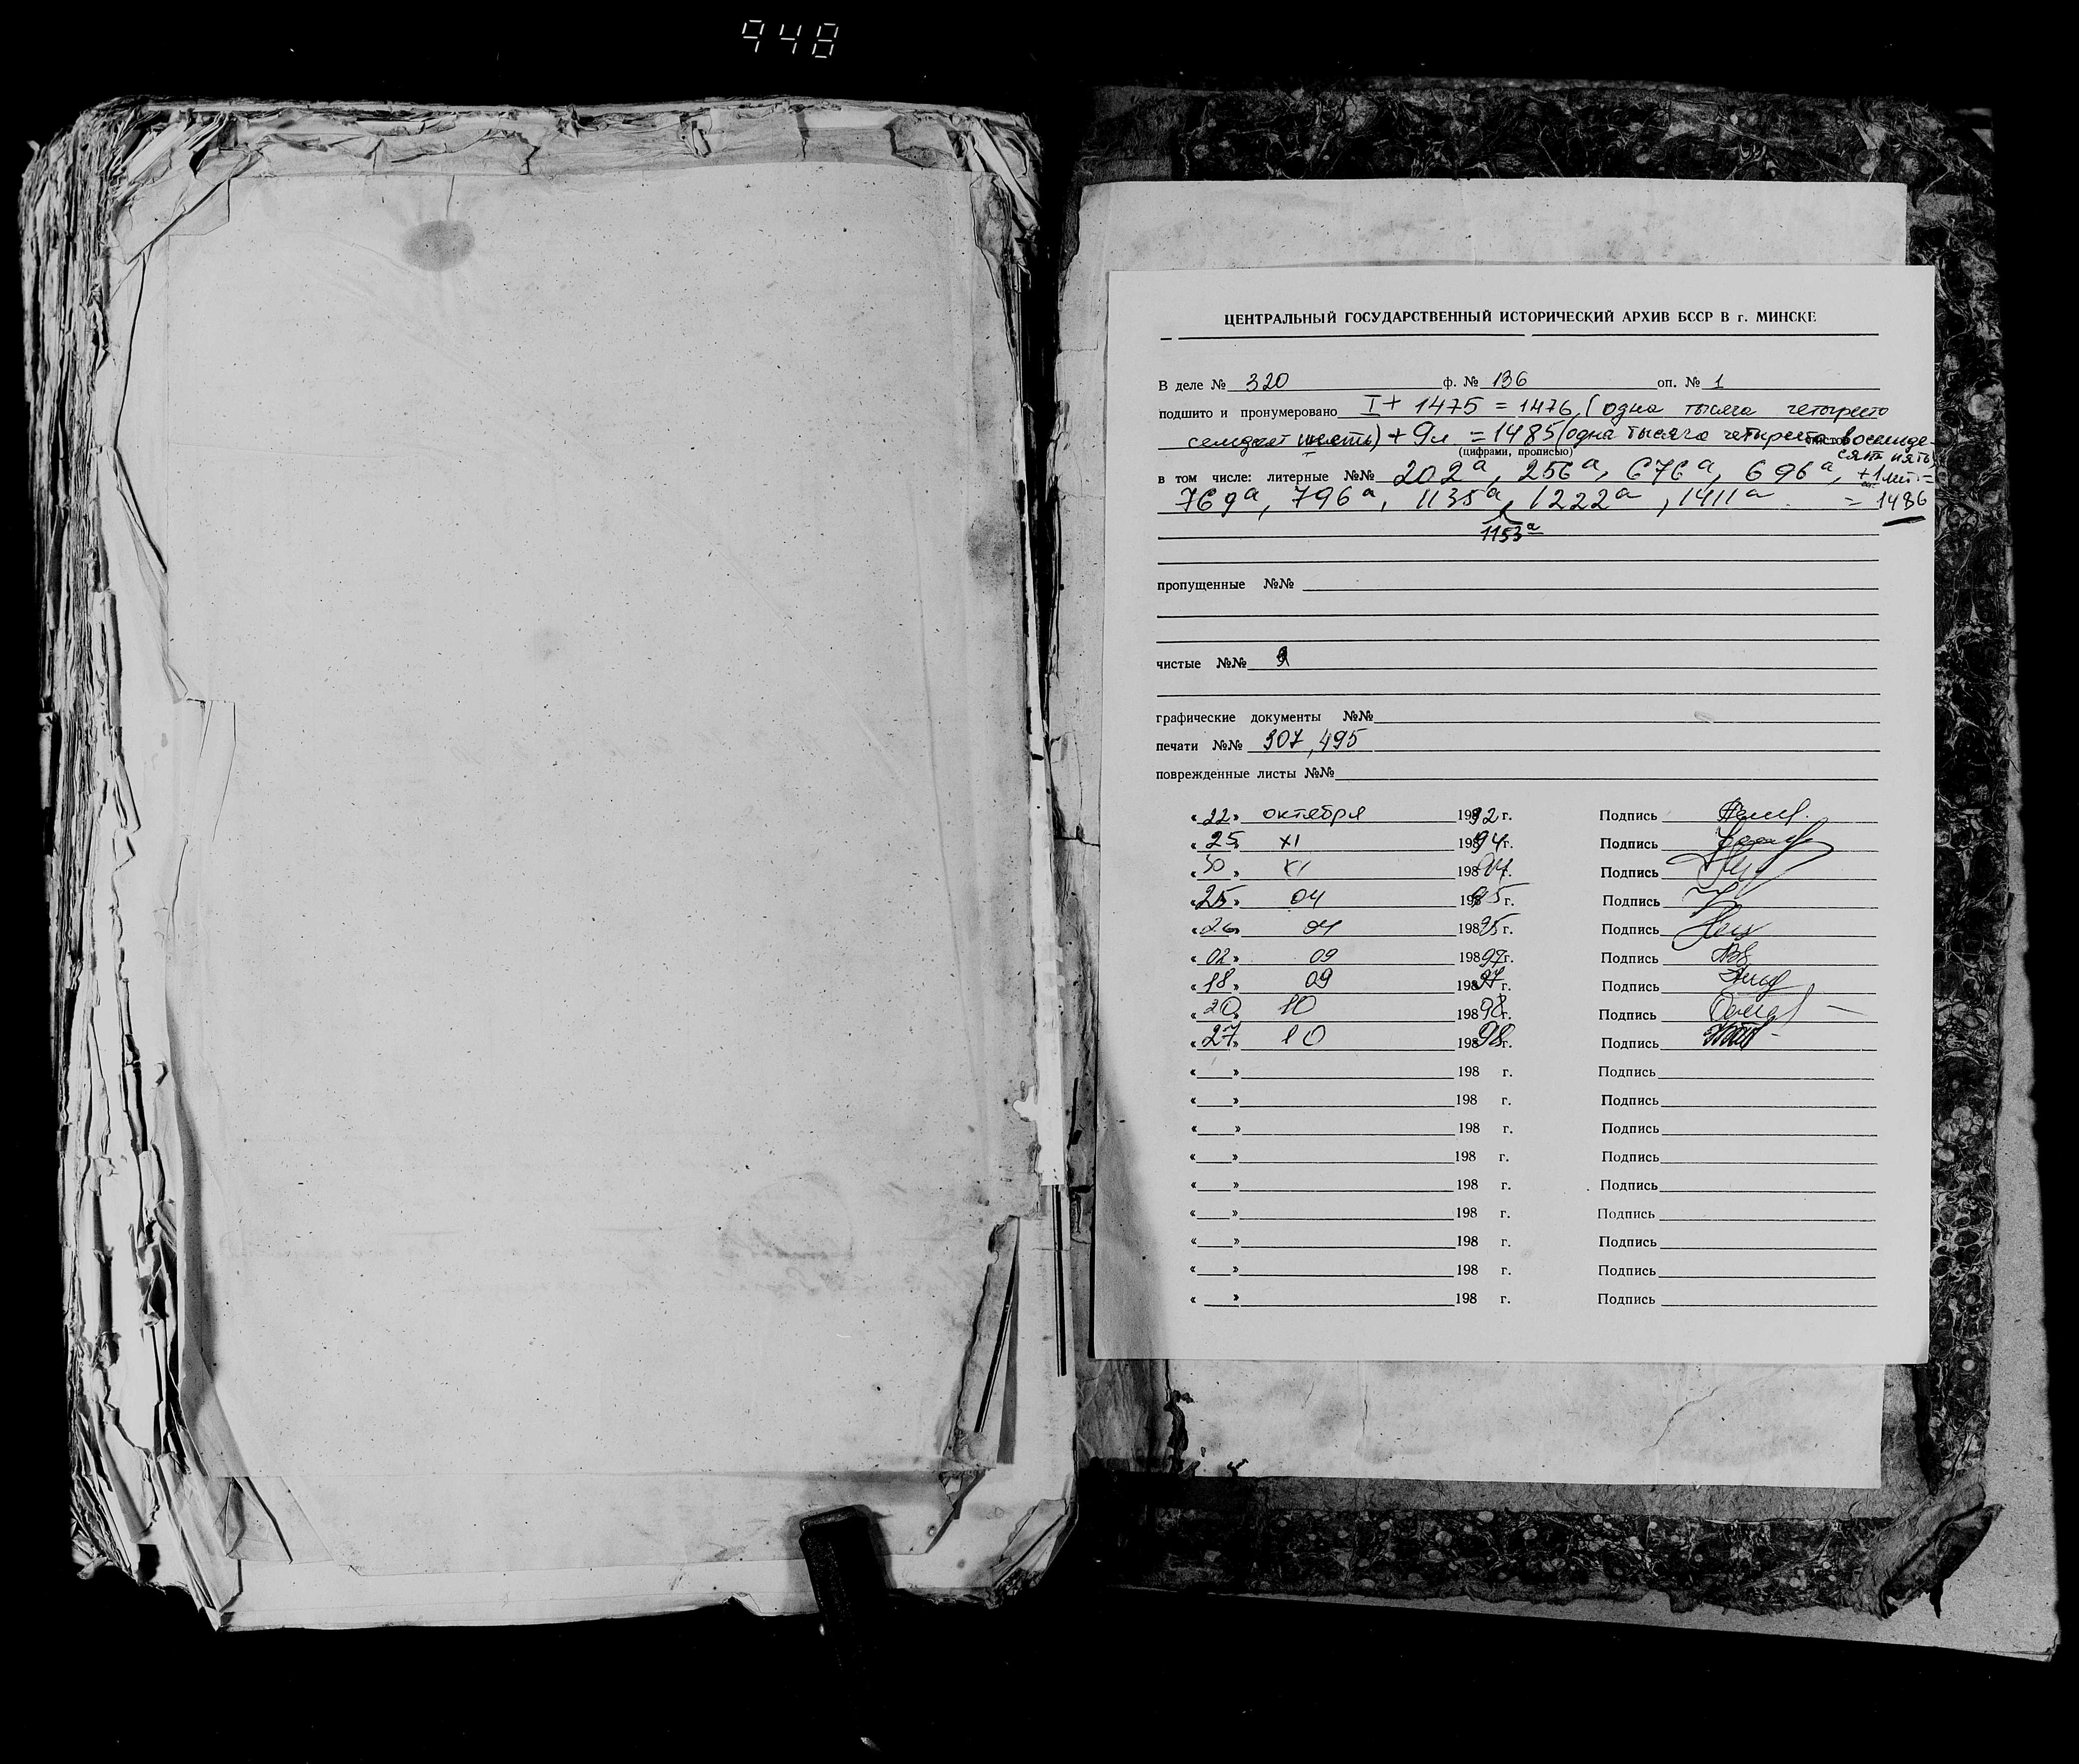 948
ЦЕНТРАЛЬНЫЙ ГОСУДАРСТВЕННЫЙ ИСТОРИЧЕСКИЙ АРХИВ БССР В г. МИНСКЕ
В деле № 320 ф. № 136 оп. № 1
подшито и пронумеровано I + 1475 = 1476 (одна тысяча четыресто
семдсят шесть) + 9л = 1485 (одна тысяча четыреста восемьде-
(цифрами, прописью)
сят пять)
в том числе: литерные №№ 202а, 256а, 676а, 696а, +1 лит. =
769а, 796а, 1135а, 1222а, 1411а = 1486
1153а
пропущенные №№
чистые №№
графические документы №№
печати №№ 307, 495
поврежденные листы №№
«22» октября 1992 г. Подпись
«25» XI 1994 г. Подпись
«30» XI 19894 г. Подпись
«25» 04 1995 г. Подпись
«26» 04 19895 г. Подпись
«02» 09 19897 г. Подпись
«18» 09 19897 г. Подпись
«20» 10 19898 г. Подпись
«27» 10 19898 г. Подпись
« » 198 г. Подпись
« » 198 г. Подпись
« » 198 г. Подпись
« » 198 г. Подпись
« » 198 г. Подпись
« » 198 г. Подпись
« » 198 г. Подпись
« » 198 г. Подпись
« » 198 г. Подпись